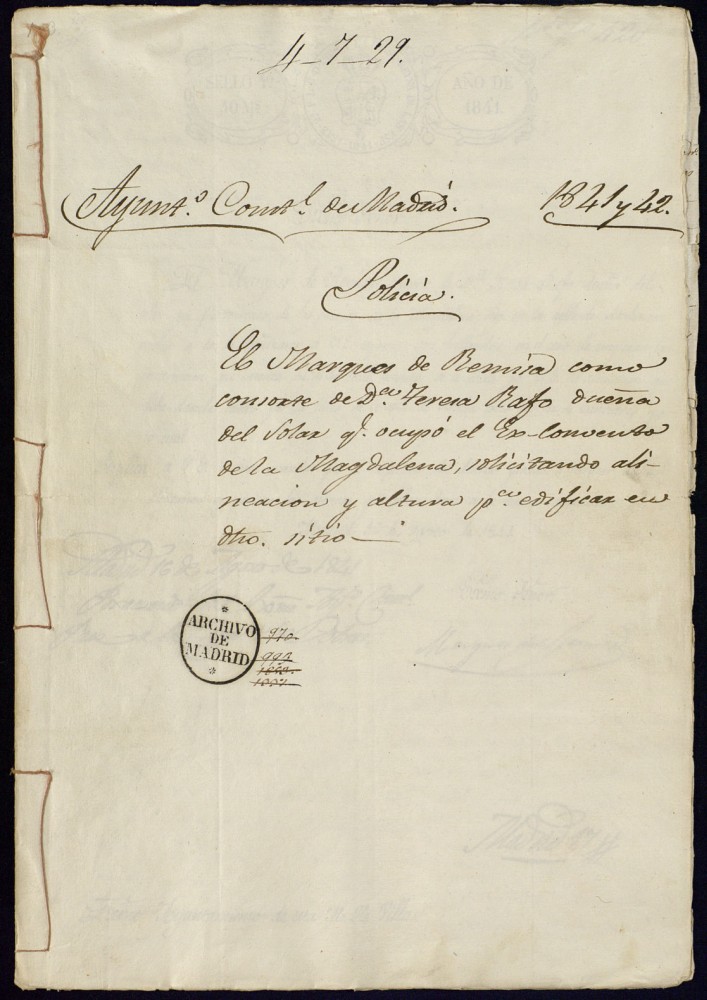 4-7-29.
Ayunt.o Const.l de Madrid. 1841 y 42.
Policia.
El Marques de Remisa como
consorte de D.a Teresa Rafo dueña
del Solar q.e ocupó el Ex-Convento
de la Magdalena, solicitando ali-
neacion y altura p.a edificar en
dho. sitio—
ARCHIVO
DE
MADRID
970.
SELLO
AÑO DE
1841.